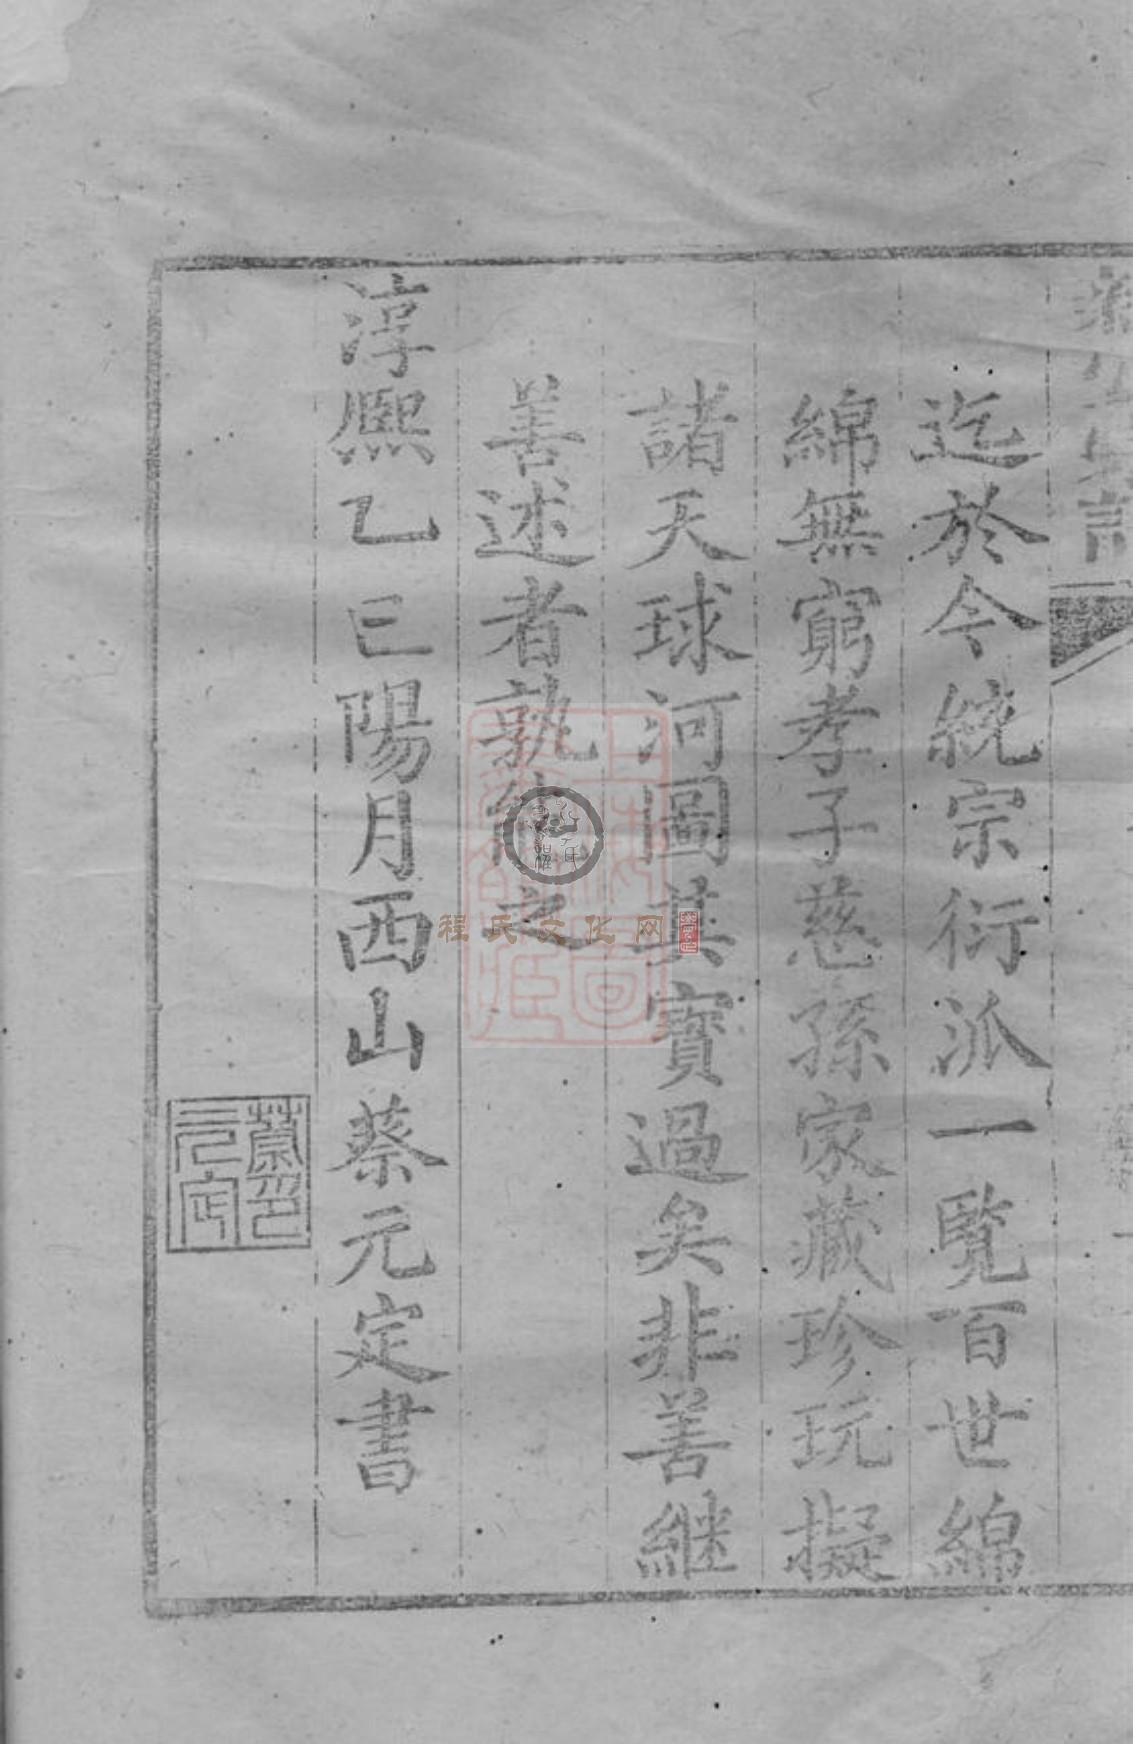 迄於今統宗衍派一覽百世綿
綿無窮孝子慈孫家藏珍玩擬
諸天球河圖其寶過矣非善継
善述者孰能之
淳熙乙巳陽月西山蔡元定書
蔡氏元定
程氏文化网